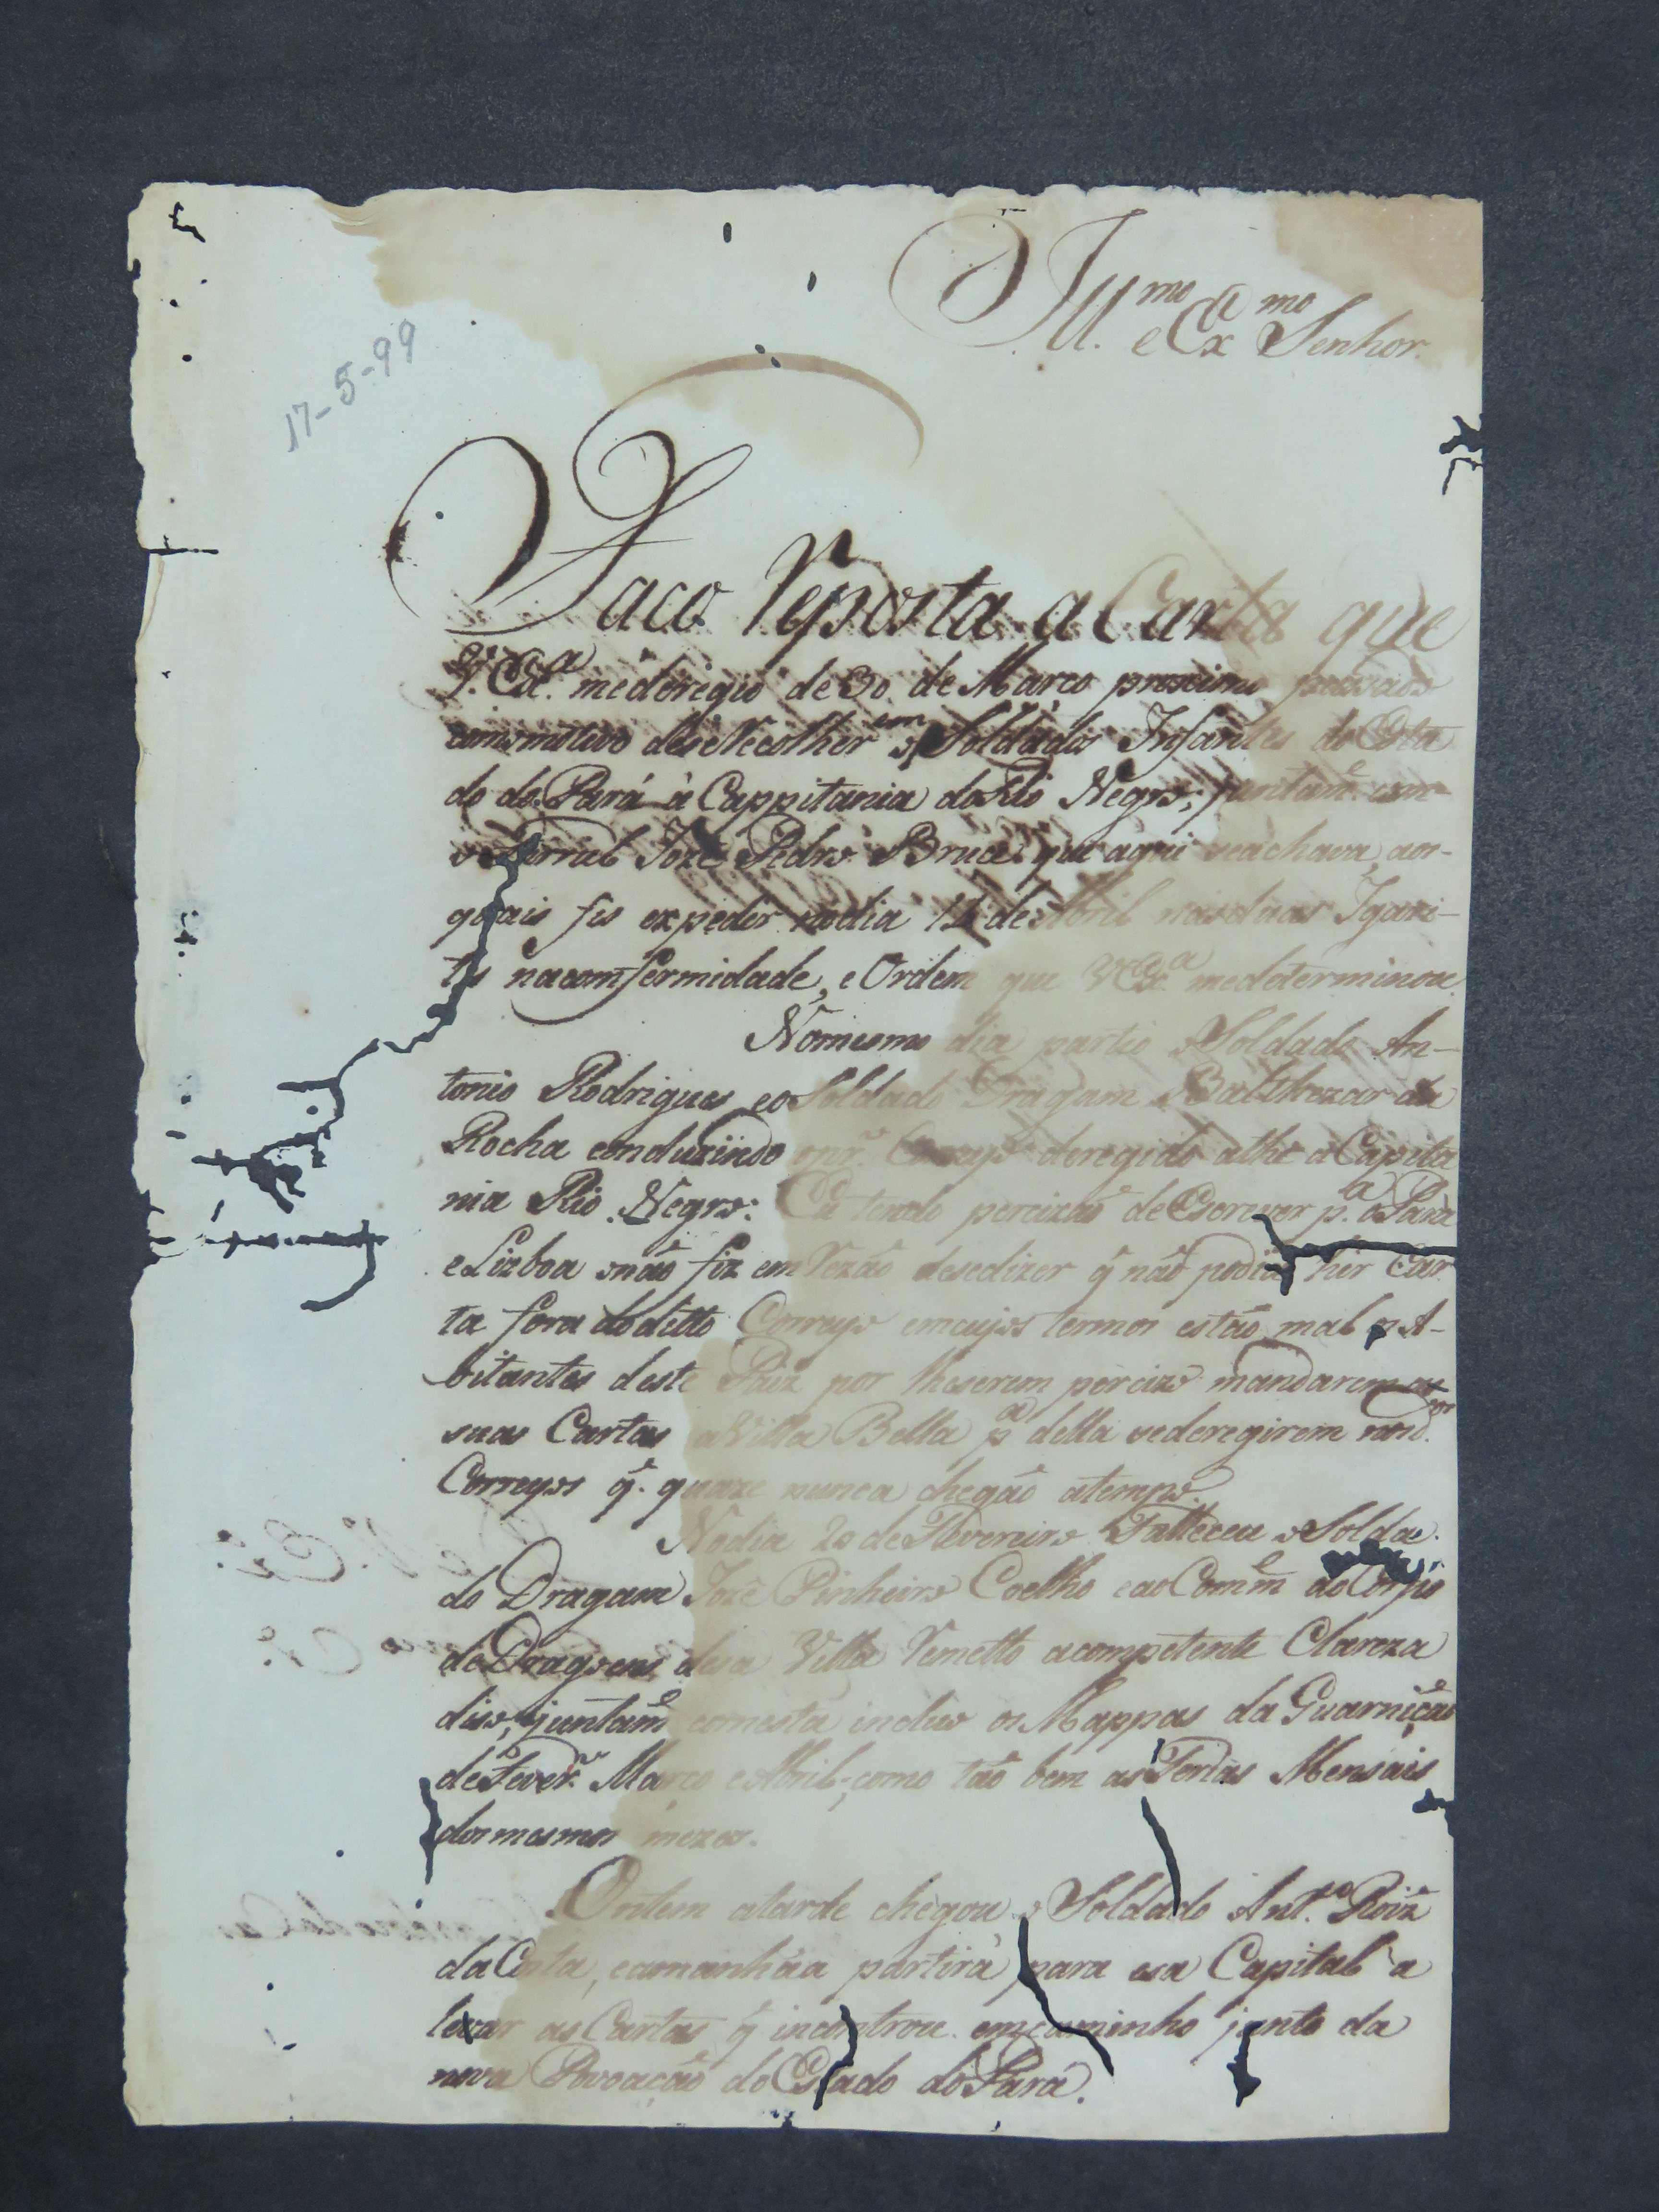 Ill.mo e Ex.mo Senhor.
17-5-99
Faco Reposta a Carta que
V. Ex.a mederegio de 30 de Março proximo passado
com omotivo dese Recolher em os Soldados Infantes do Esta
do do Pará à Cappitania do Rio Negro; juntam.e com
o Furriel Jozé Pedro Bruce, que aqui seáchava, aos
quais fis expedir nodia 12 de Abril nas duas Igari-
tes naconfermidade, e Ordem que V Ex.a medeterminou.
Nomesmo dia partio o Soldado An-
tonio Rodrigues eo Soldado Dragam Balthezar da
Rocha conduzindo Correyo deregido athe a Capita
nia Rio Negro: Eu tendo percizaõ de Escrever p.a o Pará
e Lizboa onaõ fiz em Rezaõ desedizer q̃ naõ podia hir Car
ta fora do ditto Correyo emcujos termos estaõ mal os A-
bitantes deste Paiz por lheserem percizo mandarem as
suas Cartas a Villa Bella p.a della sederegirem
Correyos q̃. quaze nunca chegaõ atempo.
Nodia 20 de Fevereiro Falleceu o Solda
do Dragam Jozé Pinheiro Coelho eao Comm.e do Corpo
de Dragoens desa Villa Remetto acompetente Clareza
diso, juntam.e comesta incluo os Mappas da Guarniçaõ
de Fever.o Março e Abril; como taõ bem as Mensais
dosmesmos mezes.
Ontem atarde chegou o Soldado Ant.o Roiz
da Costa, eamanháa partirá para esa Capital a
levar as Cartas q̃ incontrou emcaminho junto da
nova Povoaçaõ do Estado do Pará.